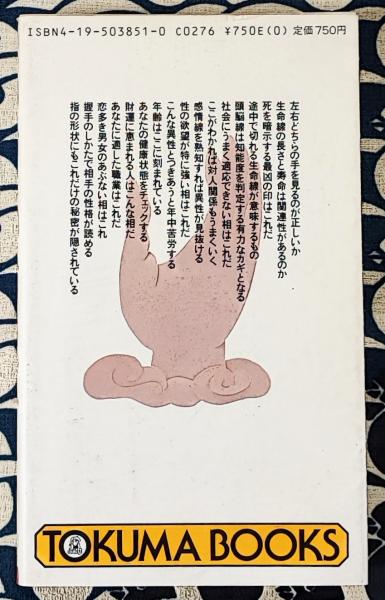 ISBN4-19-503851-0 C0276 ¥750E(0) 定価750円
左右どちらの手を見るのが正しいか
生命線の長さと寿命は関連性があるのか
死を暗示する最凶の印はこれだ
途中で切れる生命線が意味するもの
頭脳線は知能度を判定する有力なカギとなる
社会にうまく適応できない相はこれだ
ここがわかれば対人関係もうまくいく
感情線を熟知すれば異性が見抜ける
性の欲望が特に強い相はこれだ
こんな異性とつきあうと年中苦労する
年齢はここに刻まれている
あなたの健康状態をチェックする
財運に恵まれる人はこんな相だ
あなたに適した職業はこれだ
恋多き男女のあぶない相はこれ
握手のしかたで相手の性格が読める
指の形状にもこれだけの秘密が隠されている
TOKUMA BOOKS